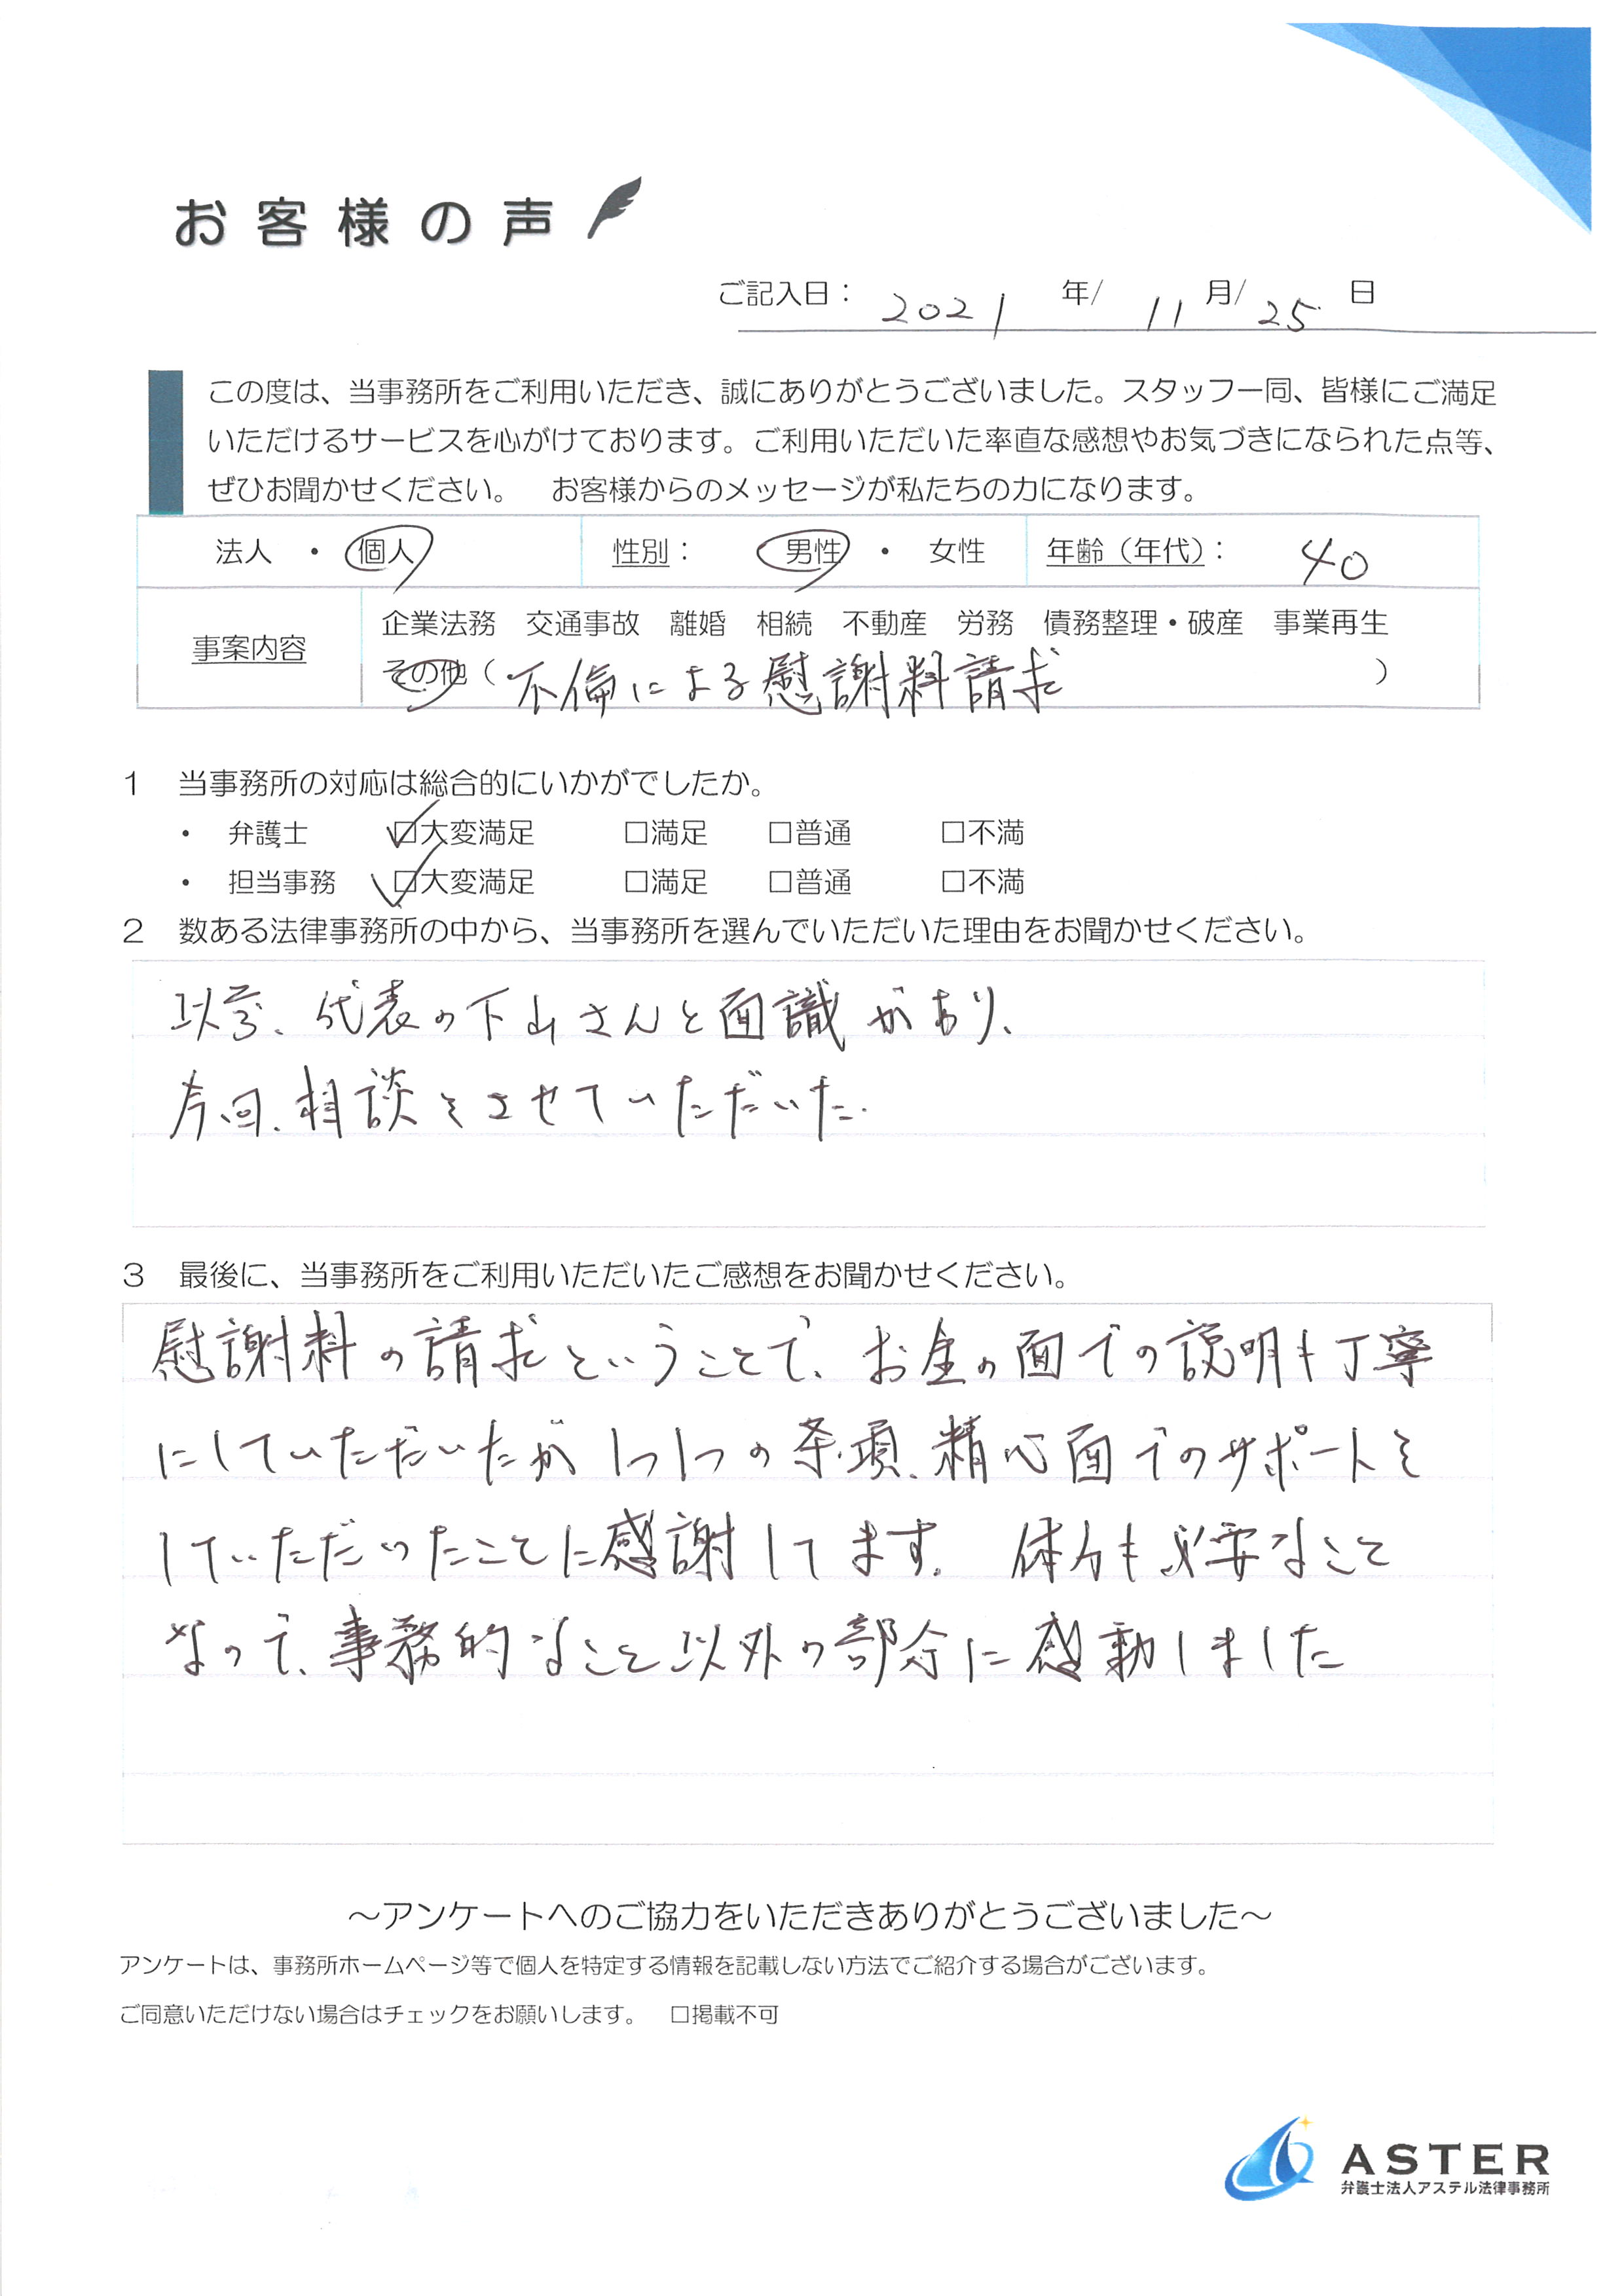 お客様の声
ご記入日： 2021 年/ 11 月/ 25 日
この度は、当事務所をご利用いただき、誠にありがとうございました。スタッフ一同、皆様にご満足
いただけるサービスを心がけております。ご利用いただいた率直な感想やお気づきになられた点等、
ぜひお聞かせください。　お客様からのメッセージが私たちの力になります。
法人 ・ 個人 性別： 男性 ・ 女性 年齢（年代）： 40
事案内容 企業法務 交通事故 離婚 相続 不動産 労務 債務整理・破産 事業再生
その他（ 不倫による慰謝料請求 ）
1 当事務所の対応は総合的にいかがでしたか。
・ 弁護士 ☑大変満足 □満足 □普通 □不満
・ 担当事務 ☑大変満足 □満足 □普通 □不満
2 数ある法律事務所の中から、当事務所を選んでいただいた理由をお聞かせください。
以前、代表の下山さんと面識があり、
今回、相談をさせていただいた。
3 最後に、当事務所をご利用いただいたご感想をお聞かせください。
慰謝料の請求ということで、お金の面での説明も丁寧
にしていただいたが 1つ1つの条項、精心面でのサポートを
していただいたことに感謝してます。 体力も必要なこと
なので、事務的なこと以外の部分に感動しました
～アンケートへのご協力をいただきありがとうございました～
アンケートは、事務所ホームページ等で個人を特定する情報を記載しない方法でご紹介する場合がございます。
ご同意いただけない場合はチェックをお願いします。 □掲載不可
ASTER
弁護士法人アステル法律事務所